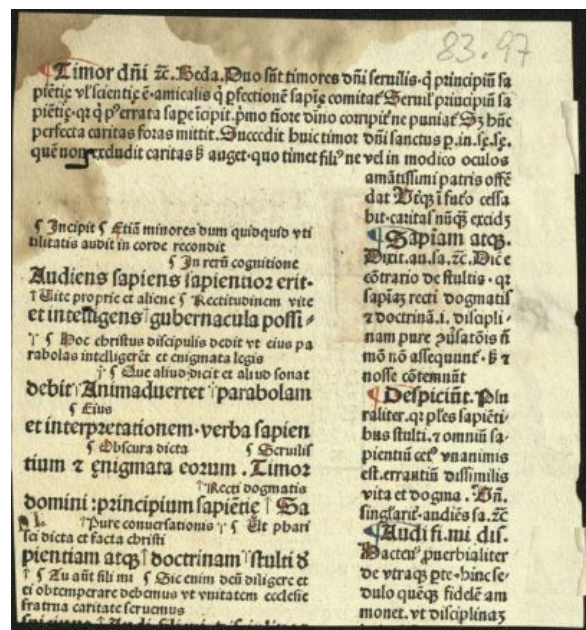 83.97
¶Timor dñi ⁊c. Beda. Duo sūt timores dñi seruilis. q̇ principiū sa
piētię vl̓ scientię ē. amicalis q̇ p̱fectionē sapię comitat᷒ Seruil᷒ principiū sa
piētię. qr q̇ p᷒ errata sape īcipit. p̱mo tiore diuio corripit᷒ ne puniat᷒ Sʒ hūc
perfecta caritas foras mittit. Succedit huic timor dñi sanctus p̱.in.sę.sę.
quē non excludit caritas sʒ auget. quo timet fili᷒ ne vel in modico oculos
amātissimi patris offē
dat Vtiqʒ ī futo cessa
bit. caritas nūqʒ excidʒ
¶ Incipit ¶ Etiā minores dum quidquid vti
tilitatis audit in corde recondit
¶ In rerū cognitione
Audiens sapiens sapientior erit.
↑ Vite proprie et aliene ¶ Rectitudinem vite
et intelligens↑gubernacula possi⸗
↑ ¶ Hoc christus discipulis dedit vt eius pa
rabolas intelligerēt et enigmata legis
↑ ¶ Que aliud dicit et aliud sonat
debit↑Animaduertet↑parabolam
¶ Eius
et interpretationem. verba sapien
¶ Obscura dicta ¶ Seruilis
tium ⁊ ęnigmata eorum. Timor
↑Recti dogmatis
domini : principium sapiētię↑Sa
↑Pure conuersationis ↑ ¶ Vt phari
sei dicta et facta christi
pientiam atqʒ↑doctrinam↑stulti d̓
↑ ¶ Tu aūt fili mi ¶ Sic enim deū diligere et
ei obtemperare debemus vt vnitatem ecclesie
fraterna caritate seruemus
¶Sapiam atqʒ.
Dixit. au. sa. ⁊c. Dic e
cōtrario de stultis. qr
sapiaʒ recti dogmatis
⁊ doctrinā.i. discipli-
nam pure ꝯuersatōis ñ
mō nō assequunt᷒. sʒ ⁊
nosse cōtemnūt
¶Despiciūt. Plu
raliter. qr ples sapiēti-
bus stulti. ⁊ omniū sa-
pientiū cet᷒ vnanimis
est. errantiū dissimilis
vita et dogma. Vñ.
singlarit᷒. audiēs sa. ⁊c
¶Audi fi. mi dis.
Hacten᷒ ꝓuerbialiter
de vtraqʒ p̱te. hinc se-
dulo quēqʒ fidelē am
monet. vt disciplinaʒ